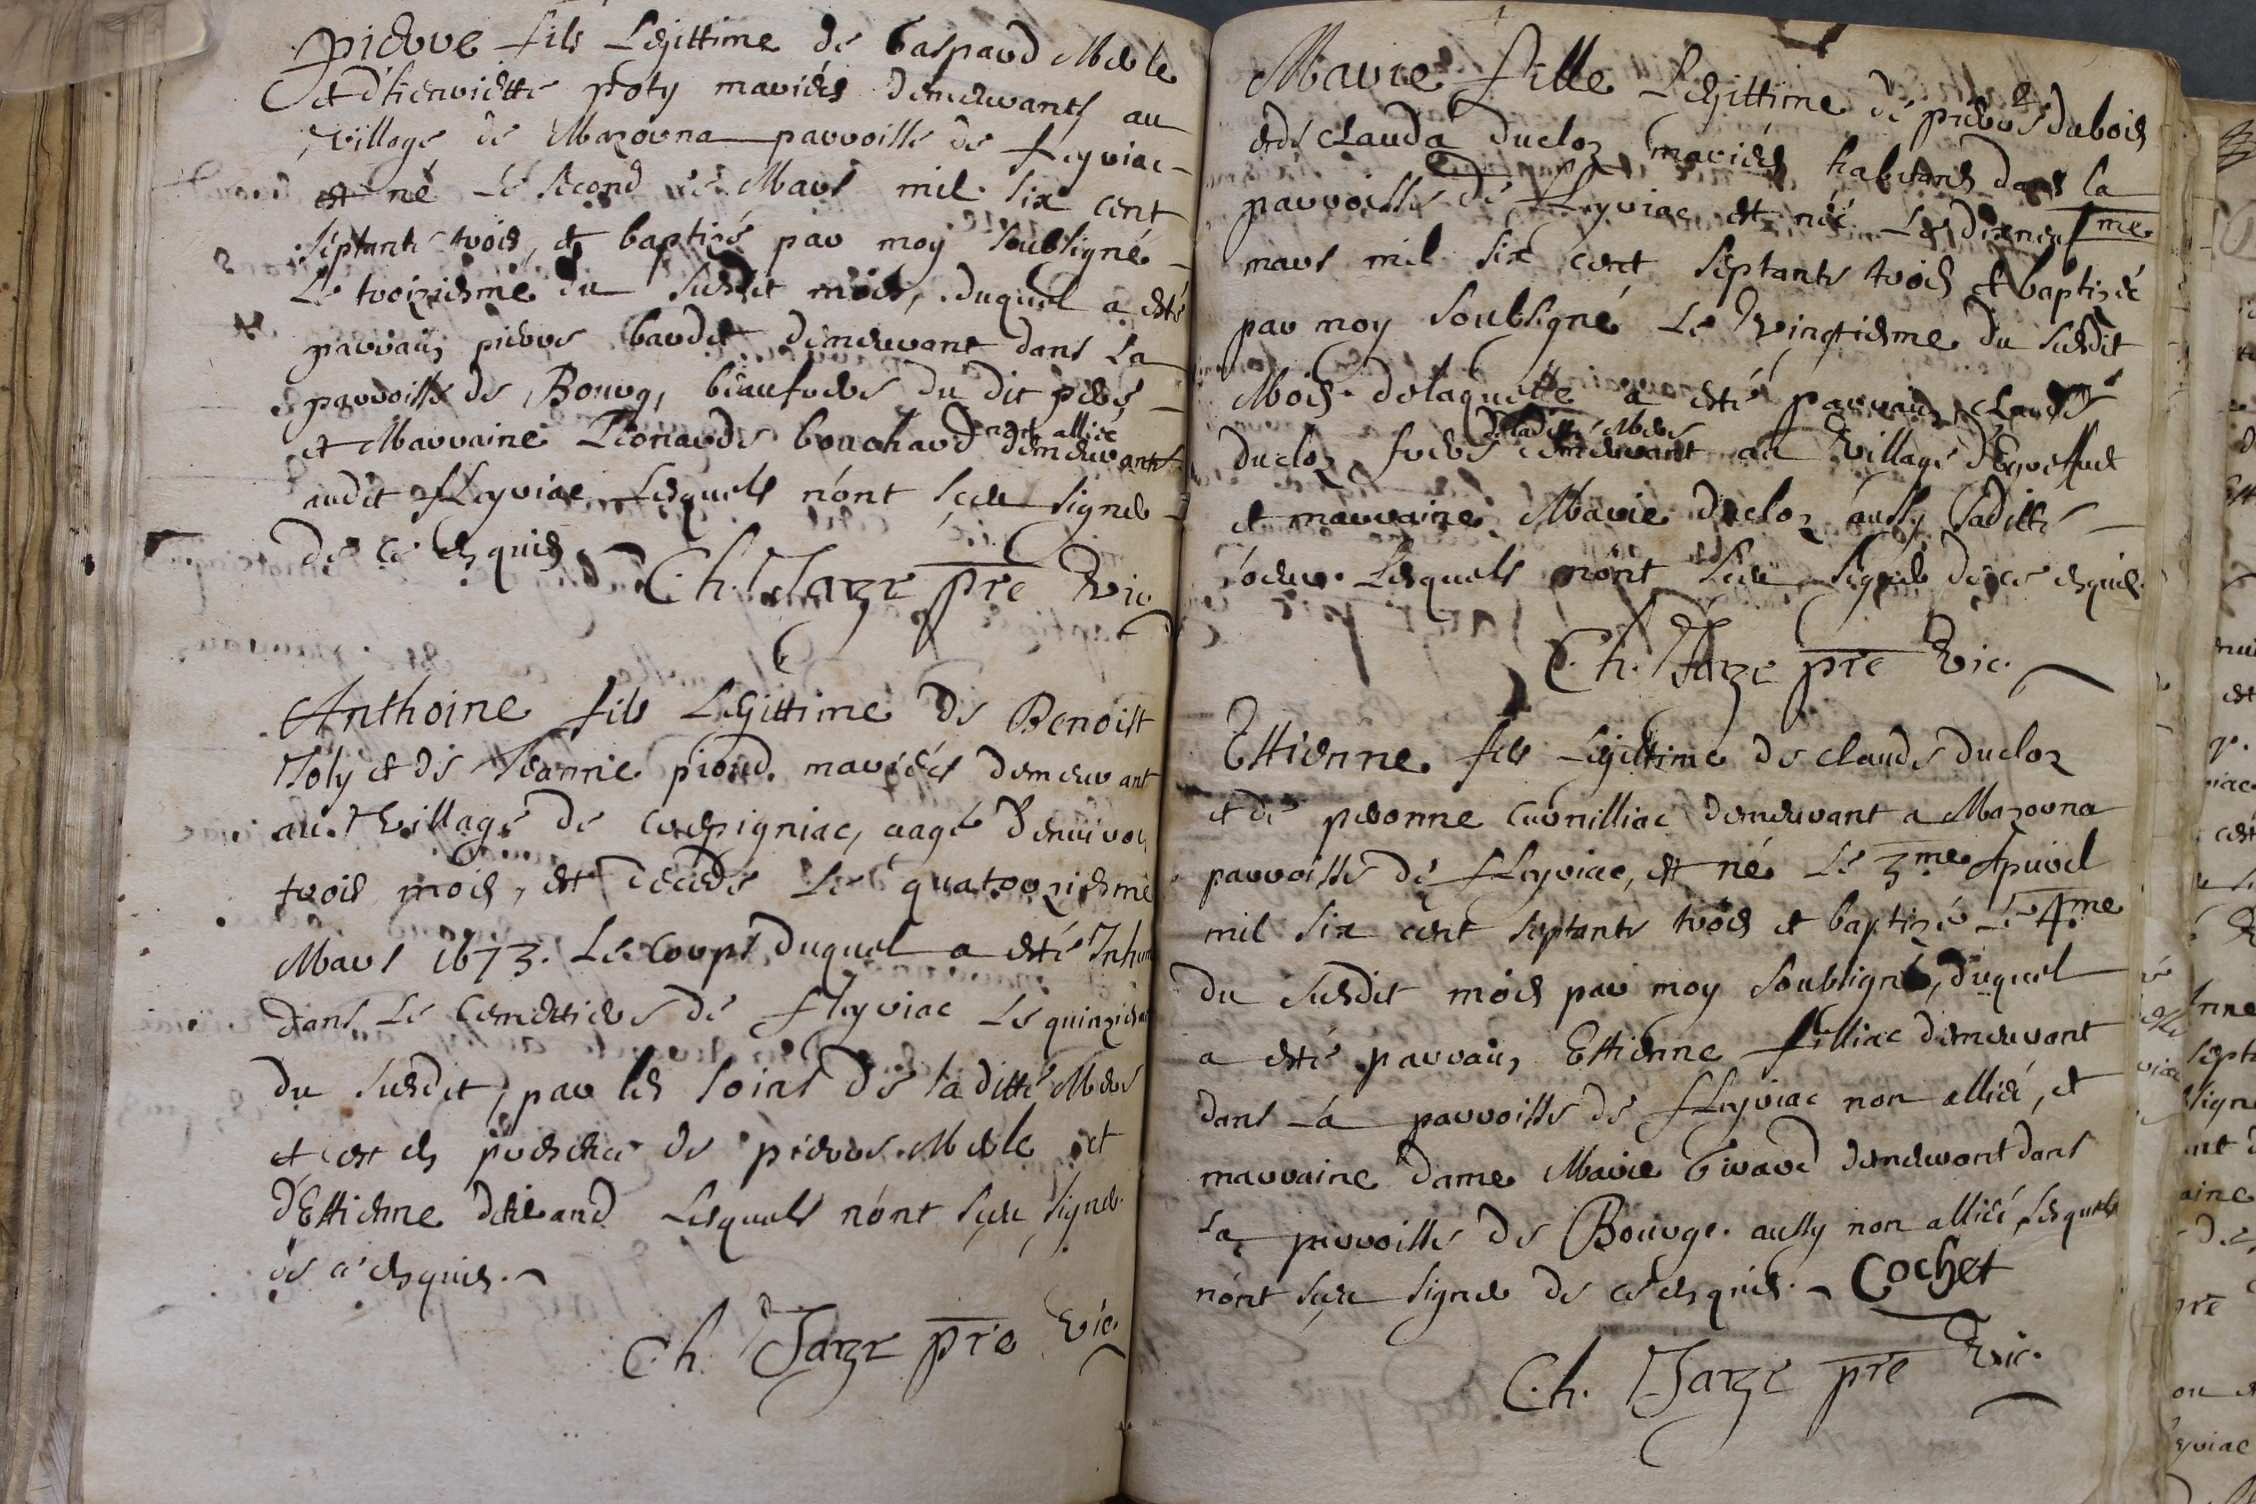 pierre fils Legittime de Gaspard Merle
et d'hienriette poly mariés demeurants au
village de Mazorna parroisse de fleyriac
est né Le second de Mars mil six cent
septante trois, et baptisé par moy soubsigné
Le troiziesme du susdit mois, duquel a esté
parrain pierre baudet demeurant dans La
parroisse de Bourg, beaufrere du dit pere,
et Marraine Leonarde bouchard non alliée demeurante
audit fleyriac Lesquels n'ont sceu signer
de ce enquis
Ch. Jarze pre vic
Anthoine fils Legittime de Benoist
Joly et de Jeanne pioud mariés demeurant
au village de crespigniac, aagé d'environ
trois mois, est decede Le quatorziesme
Mars 1673. Le corps duquel a esté Inhumé
dans Le Cemettiere de fleyriac Le quinziesme
du susdit, par les soins de sa ditte Mere
et cest en presence de pierre Merle et
d'Ettienne Lesquels n'ont sceu signer
de ce enquis.
Ch. Jarze pre vic.
Marie fille Legittime de pierre dubois
et de clauda ducloz mariés habitans dans la
parroisse de fleyriac est née Le dixneufme
mars mil six cent septante trois et baptizée
par moy soubsigné Le vingtiesme du susdit
Mois. de laquelle a esté parrain claude
ducloz frere de laditte Mere demeurant au village
et marraine Marie ducloz aussy saditte
soeur. Lesquels n'ont sceu signer de ce enquis.
Ch. Jarze pre vic.
Ettienne fils Legittime de claude ducloz
et de peronne Curnilliac demeurant a Mazorna
parroisse de fleyriac, est né Le 3me Apuril
mil six cent septante trois et baptizé Le 4me
du susdit mois par moy soubsigné, duquel
a esté parrain Ettienne filliac demeurant
dans La parroisse de fleyriac non allié, et
marraine dame Marie Girard demeurant dans
La parroisse de Bourge. aussy non alliée, Lesquels
n'ont sceu signer de ce enquis. Cochet
Ch. Jarze pre vic.